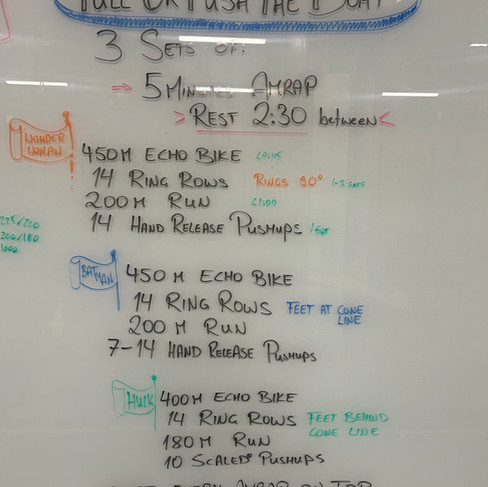 PULL OR PUSH THE BOAT
3 SETS OF:
⇒ 5 MINUTES AMRAP
> REST 2:30 between <
WONDER WOMAN
450M ECHO BIKE
14 RING ROWS RINGS 90° 1-3 SETS
200M RUN <1:00
14 HAND RELEASE PUSHUPS 1 SET
225/200
200/180
BATMAN
450 M ECHO BIKE
14 RING ROWS FEET AT CONE LINE
200 M RUN
7-14 HAND RELEASE PUSHUPS
HULK
400M ECHO BIKE
14 RING ROWS FEET BEHIND CONE LINE
180M RUN
10 SCALED PUSHUPS
EVERY AMRAP ON TOP